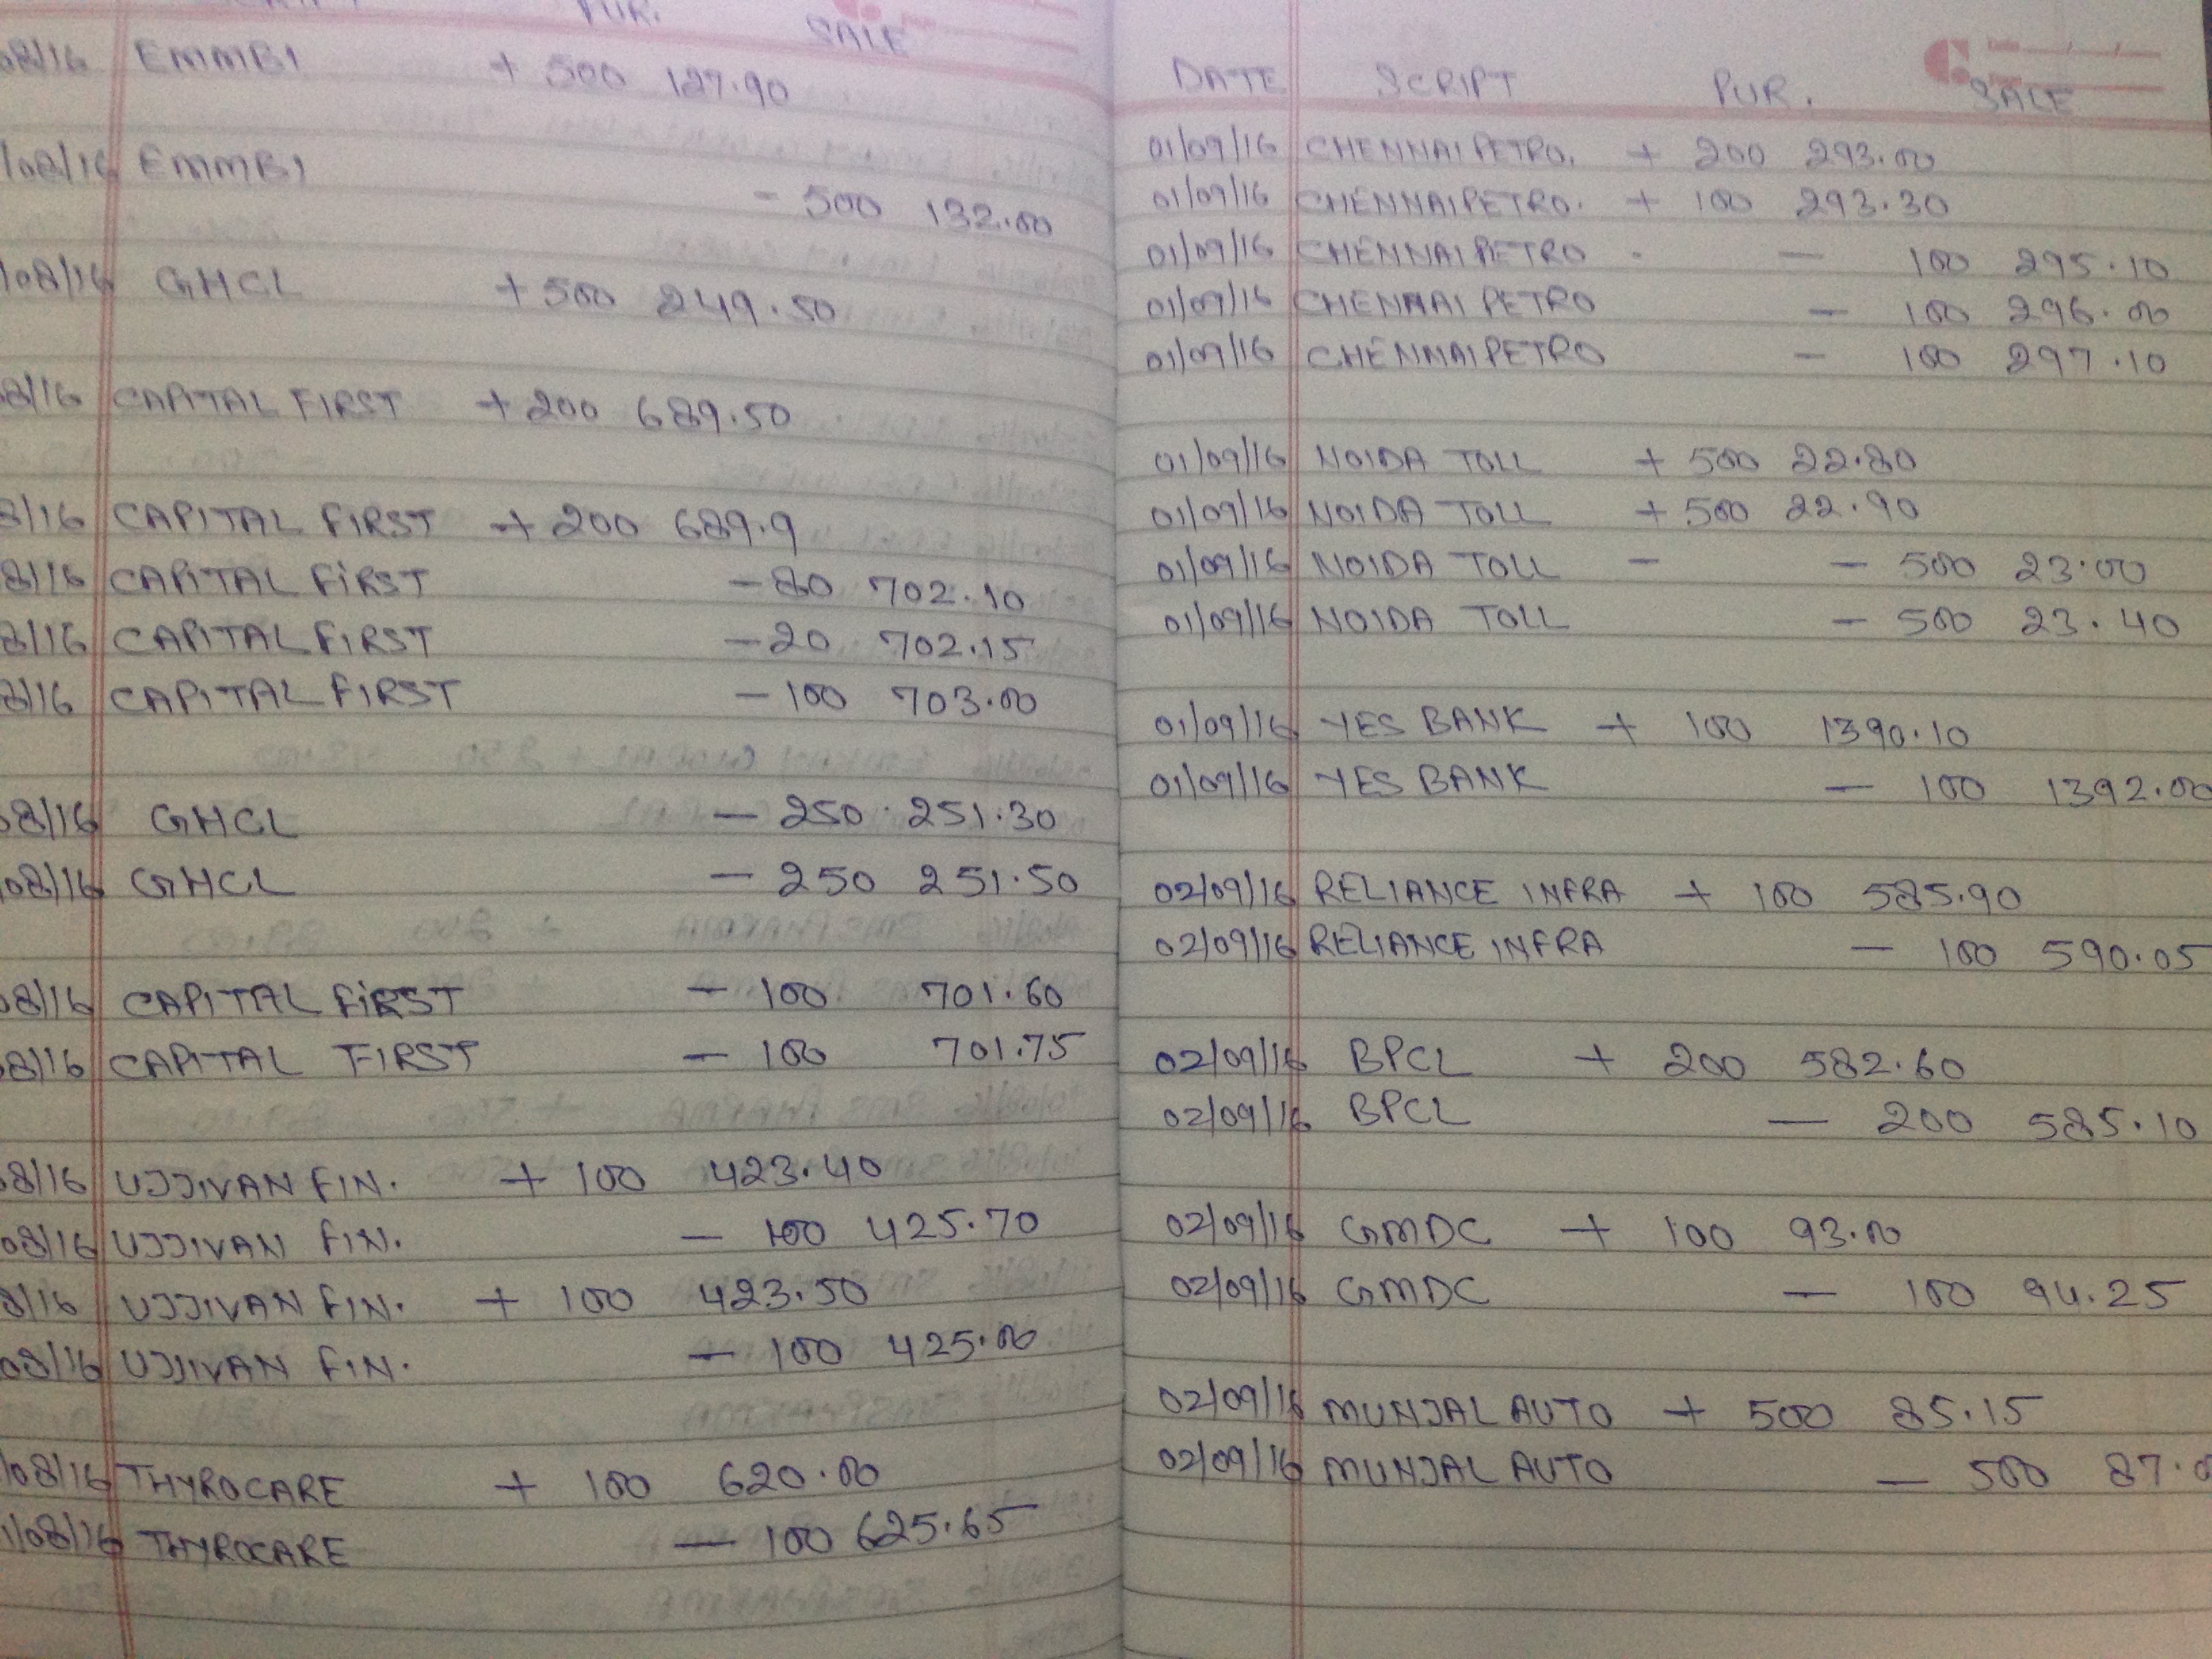 PUR. SALE
08/16 EMMBI + 500 127.90
/08/16 EMMBI - 500 132.00
/08/16 GHCL + 500 249.50
8/16 CAPITAL FIRST + 200 689.50
8/16 CAPITAL FIRST + 200 689.9
8/16 CAPITAL FIRST - 80 702.10
8/16 CAPITAL FIRST - 20 702.15
8/16 CAPITAL FIRST - 100 703.00
08/16 GHCL - 250 251.30
08/16 GHCL - 250 251.50
08/16 CAPITAL FIRST - 100 701.60
08/16 CAPITAL FIRST - 100 701.75
08/16 UJJIVAN FIN. + 100 423.40
08/16 UJJIVAN FIN. - 100 425.70
8/16 UJJIVAN FIN. + 100 423.50
08/16 UJJIVAN FIN. - 100 425.00
/08/16 THYROCARE + 100 620.00
1/08/16 THYROCARE - 100 625.65
DATE SCRIPT PUR. SALE
01/09/16 CHENNAI PETRO. + 200 293.00
01/09/16 CHENNAI PETRO. + 100 293.30
01/09/16 CHENNAI PETRO - - 100 295.10
01/09/16 CHENNAI PETRO - 100 296.00
01/09/16 CHENNAI PETRO - 100 297.10
01/09/16 NOIDA TOLL + 500 22.80
01/09/16 NOIDA TOLL + 500 22.90
01/09/16 NOIDA TOLL - - 500 23.00
01/09/16 NOIDA TOLL - 500 23.40
01/09/16 YES BANK + 100 1390.10
01/09/16 YES BANK - 100 1392.00
02/09/16 RELIANCE INFRA + 100 585.90
02/09/16 RELIANCE INFRA - 100 590.05
02/09/16 BPCL + 200 582.60
02/09/16 BPCL - 200 585.10
02/09/16 GMDC + 100 93.00
02/09/16 GMDC - 100 94.25
02/09/16 MUNJAL AUTO + 500 85.15
02/09/16 MUNJAL AUTO - 500 87.0